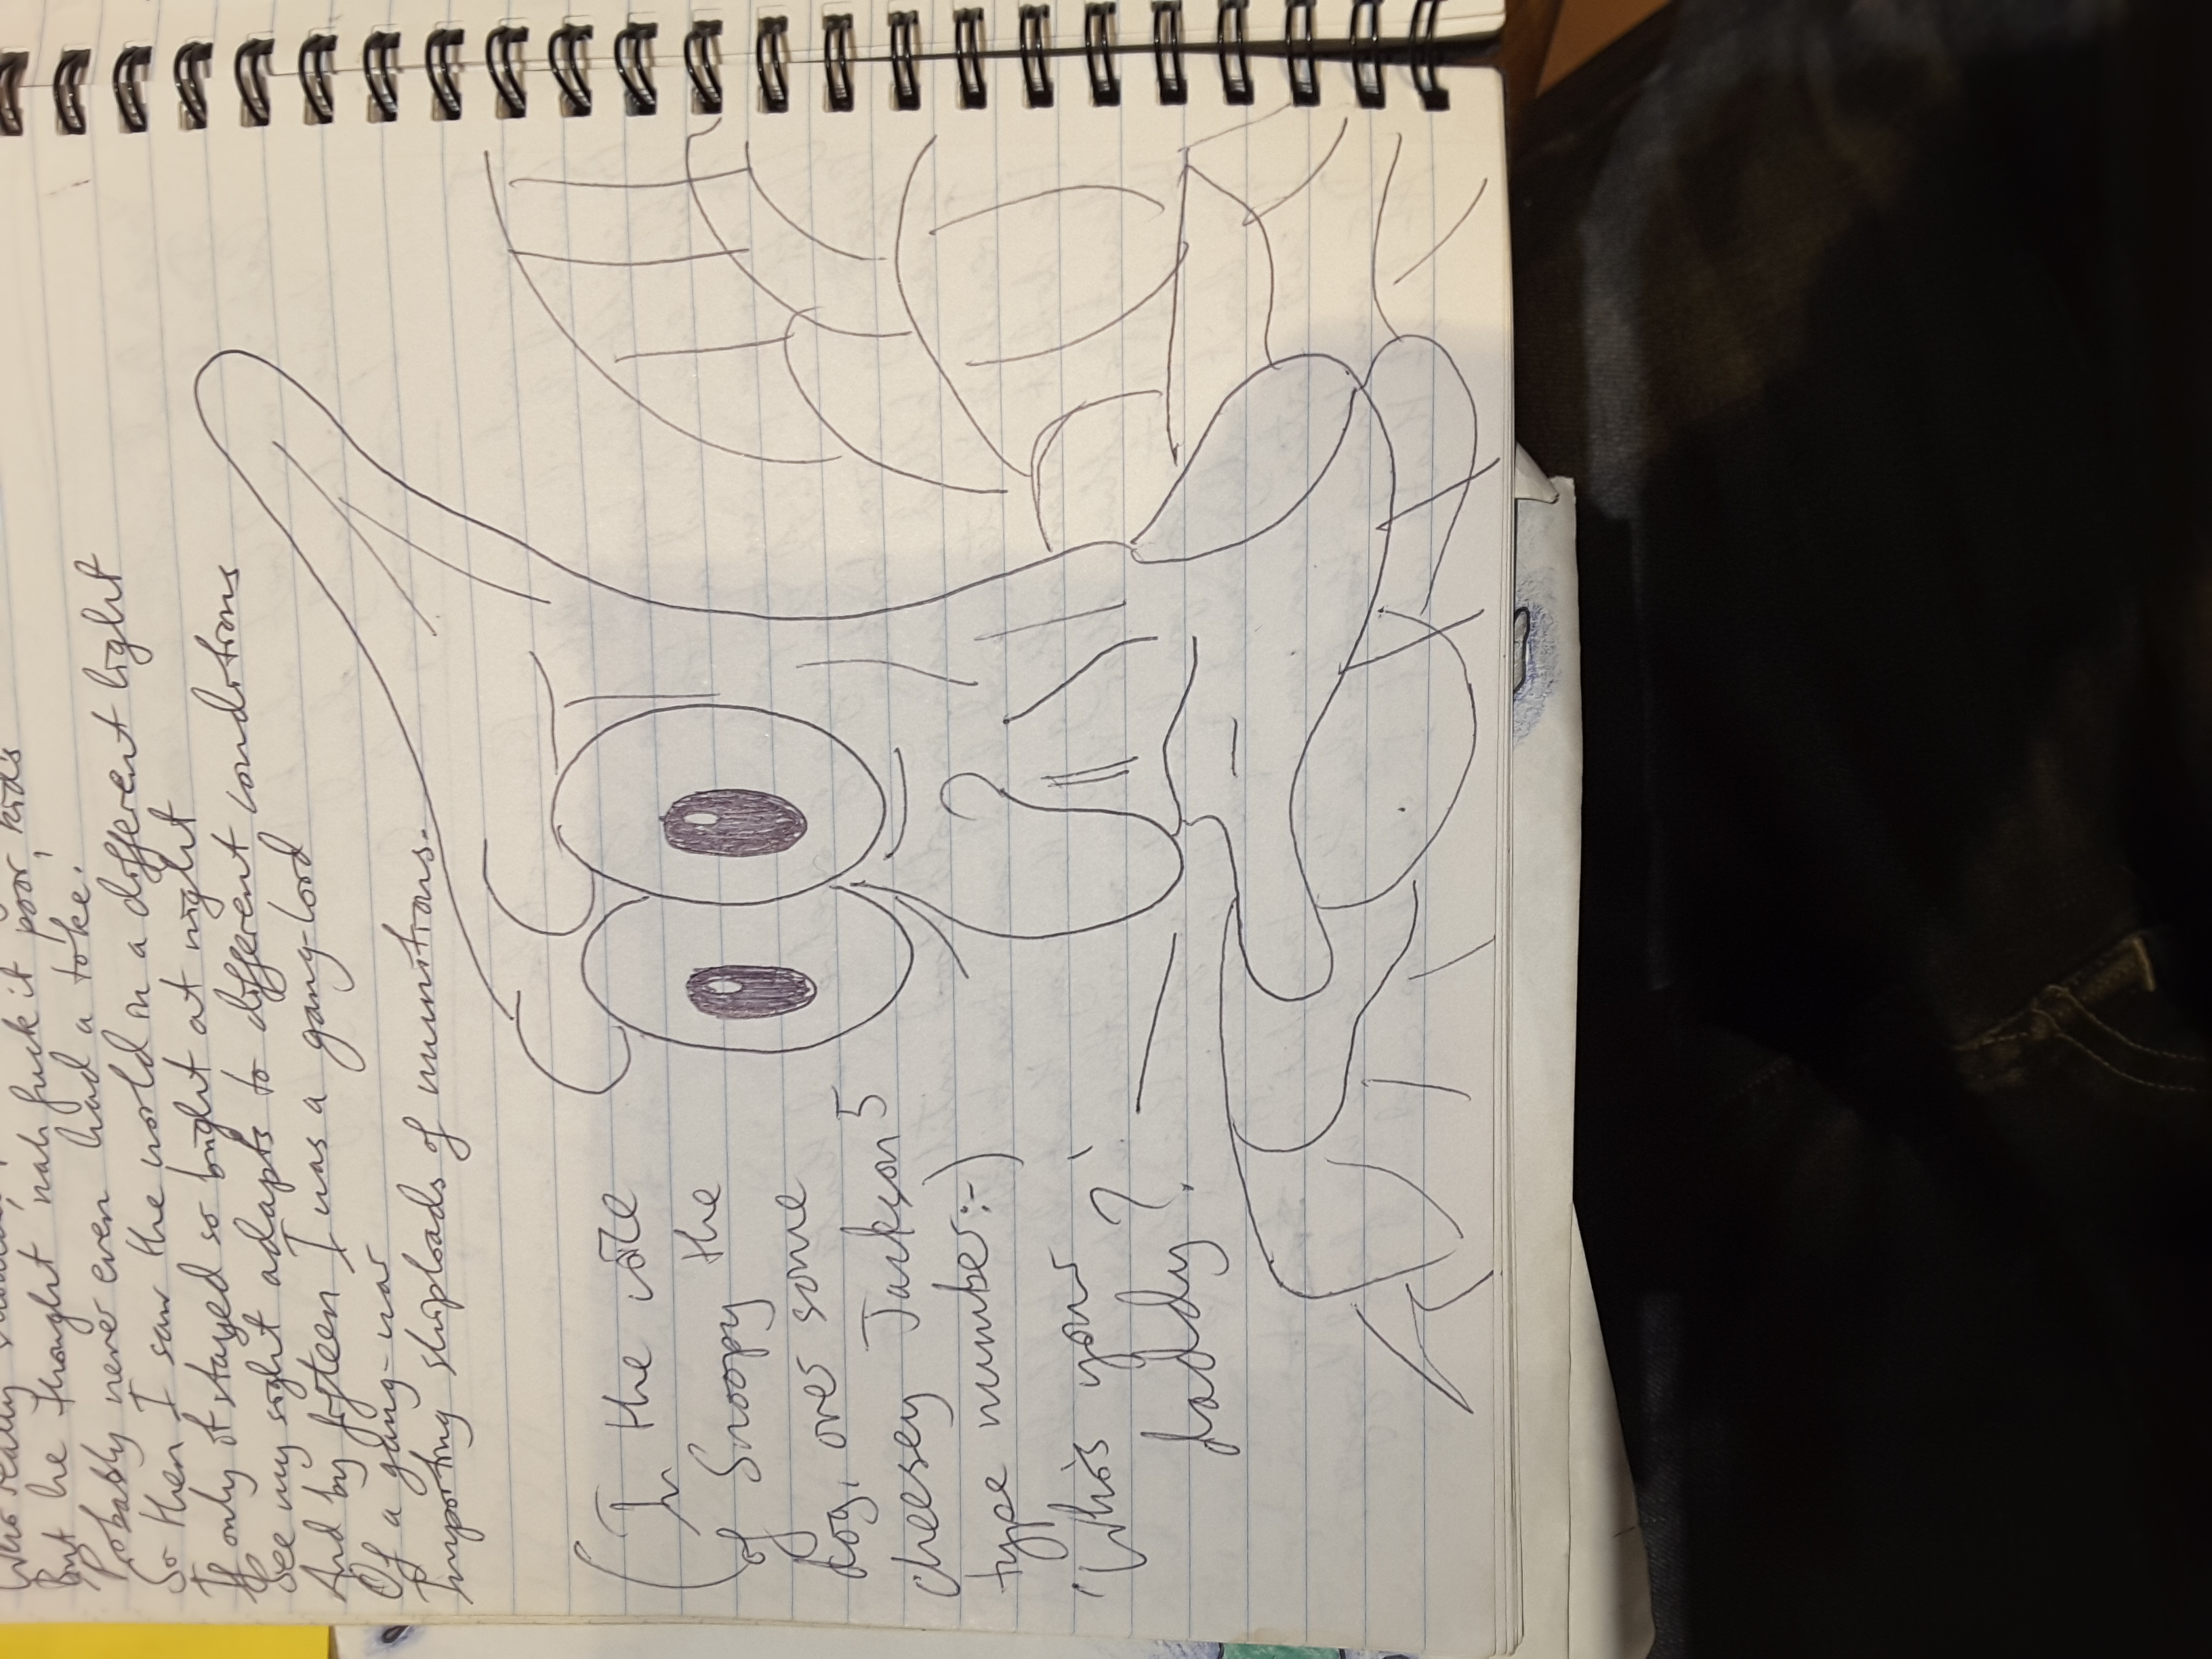 Who really
But he thought 'nah fuck it poor kids
Probably never even had a toke.'
So then I saw the world in a different light
If only it stayed so bright at night
See my sight adapts to different conditions
And by fifteen I was a gang-lord
Of a gang-war
Importing shiploads of munitions.
(In the voice
of Snoopy the
dog, over some
cheesey Jackson 5
type number:-)
'Who's your
daddy?'